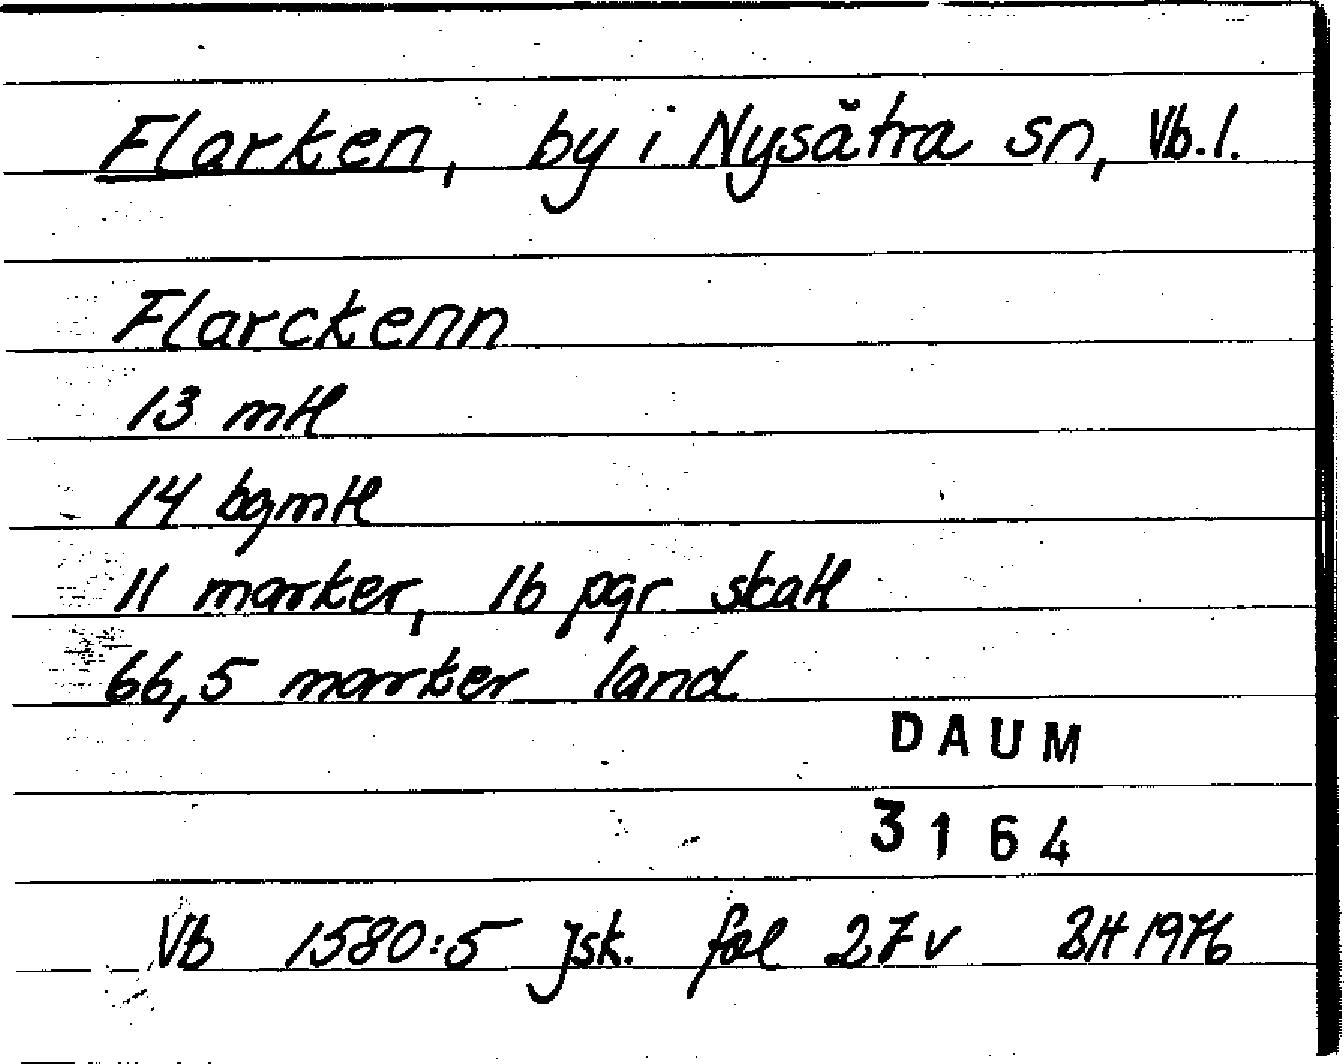 Flarken, by i Nysätra sn, Vb.l.
Flarckenn
13 mtl
14 bgmtl
11 marker, 16 pgr skatt
66,5 marker land
DAUM
3164
Vb 1580:5 Jsk. fol 27v BH 1976